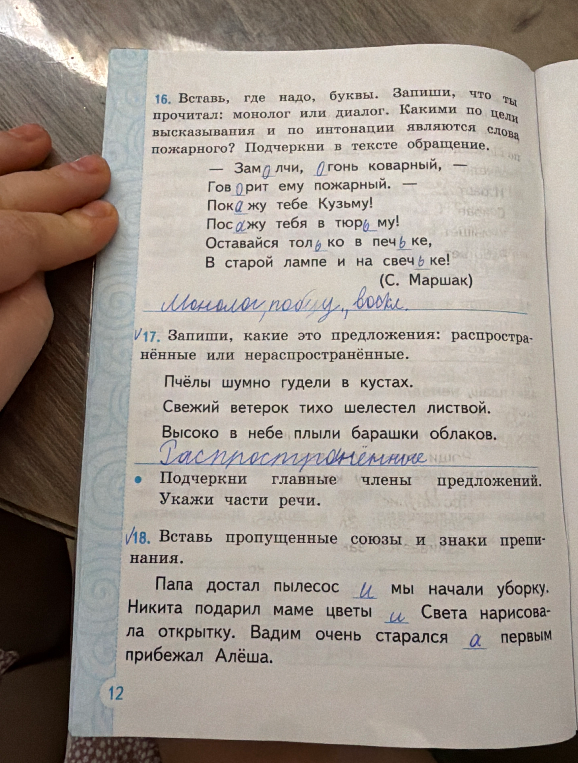 16. Вставь, где надо, буквы. Запиши, что ты
прочитал: монолог или диалог. Какими по цели
высказывания и по интонации являются слова
пожарного? Подчеркни в тексте обращение.
— Замолчи, огонь коварный, —
Говорит ему пожарный. —
Покажу тебе Кузьму!
Посажу тебя в тюрьму!
Оставайся только в печьке,
В старой лампе и на свечьке!
(С. Маршак)
Монолог, побуд., воскл.
√17. Запиши, какие это предложения: распростра-
нённые или нераспространённые.
Пчёлы шумно гудели в кустах.
Свежий ветерок тихо шелестел листвой.
Высоко в небе плыли барашки облаков.
Распространённые
• Подчеркни главные члены предложений.
Укажи части речи.
√18. Вставь пропущенные союзы и знаки препи-
нания.
Папа достал пылесос и мы начали уборку.
Никита подарил маме цветы и Света нарисова-
ла открытку. Вадим очень старался а первым
прибежал Алёша.
12